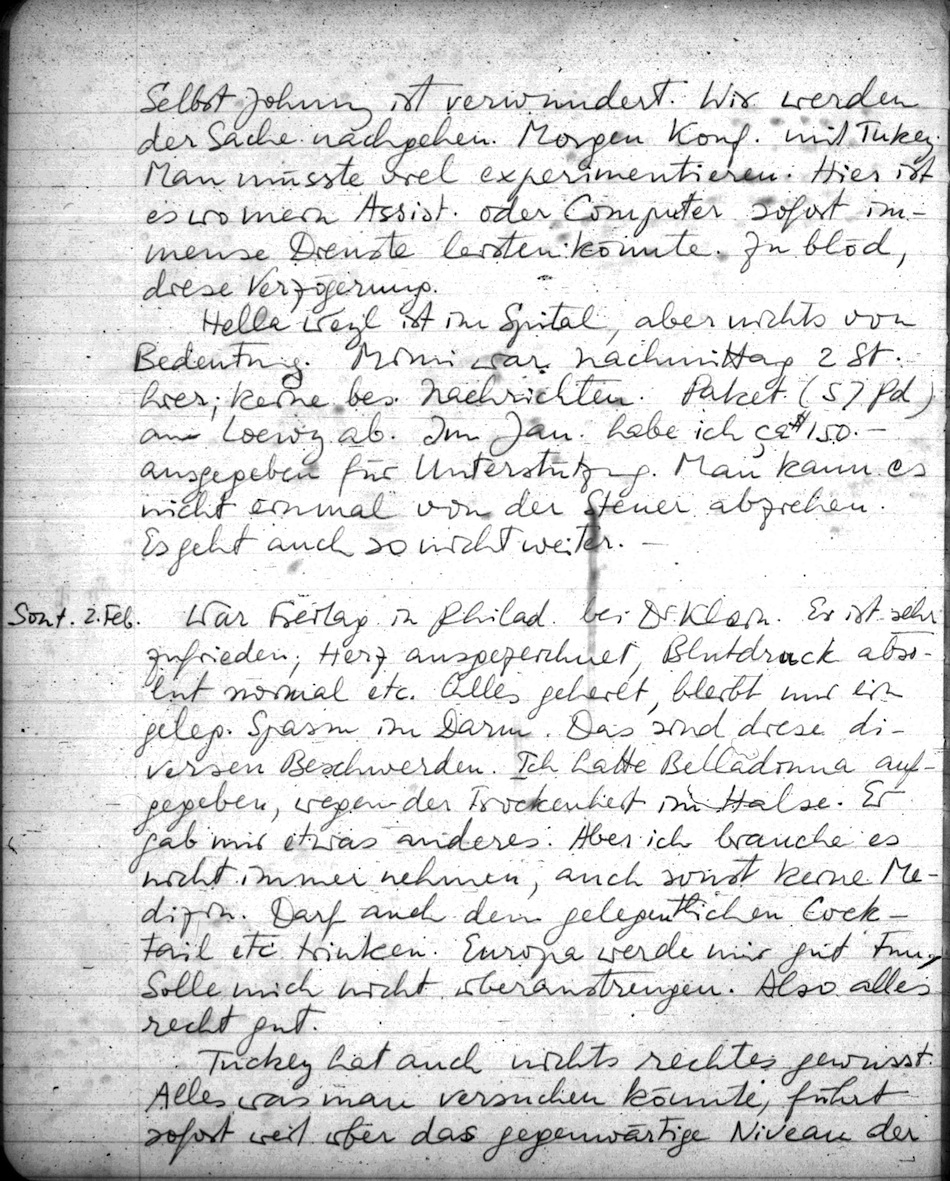 Selbst Johnny ist verwundert. Wir werden
der Sache nachgehen. Morgen Konf. mit Tukey
Man müsste viel experimentieren. Hier ist
es wo mein Assist. oder Computer sofort im-
mense Dienste leisten könnte. Zu blöd,
diese Verzögerung.
Hella Weyl ist im Spital, aber nichts von
Bedeutung. Mimi war nachmittag 2 St.
hier; keine bes. Nachrichten. Paket (57 Pd)
an Loewy ab. Im Jan. habe ich ca $150.–
ausgegeben für Unterstützung. Man kann es
nicht einmal von der Steuer abziehen.
Es geht auch so nicht weiter. –
Sont. 2. Feb. War Freitag in Philad. bei Dr Klein. Er ist sehr
zufrieden, Herz ausgezeichnet, Blutdruck abso-
lut normal etc. Alles geheilt, bleibt nur ein
geleg. Spasm im Darm. Das sind diese di-
versen Beschwerden. Ich hatte Belladonna auf-
gegeben, wegen der Trockenheit im Halse. Er
gab mir etwas anderes. Aber ich brauche es
nicht immer nehmen, auch sonst keine Me-
dizin. Darf auch den gelegentlichen Cock-
tail etc trinken. Europa werde mir gut tun,
Solle mich nicht überanstrengen. Also alles
recht gut.
Tuckey hat auch nichts rechtes gewusst.
Alles was man versuchen könnte, führt
sofort weit über das gegenwärtige Niveau der